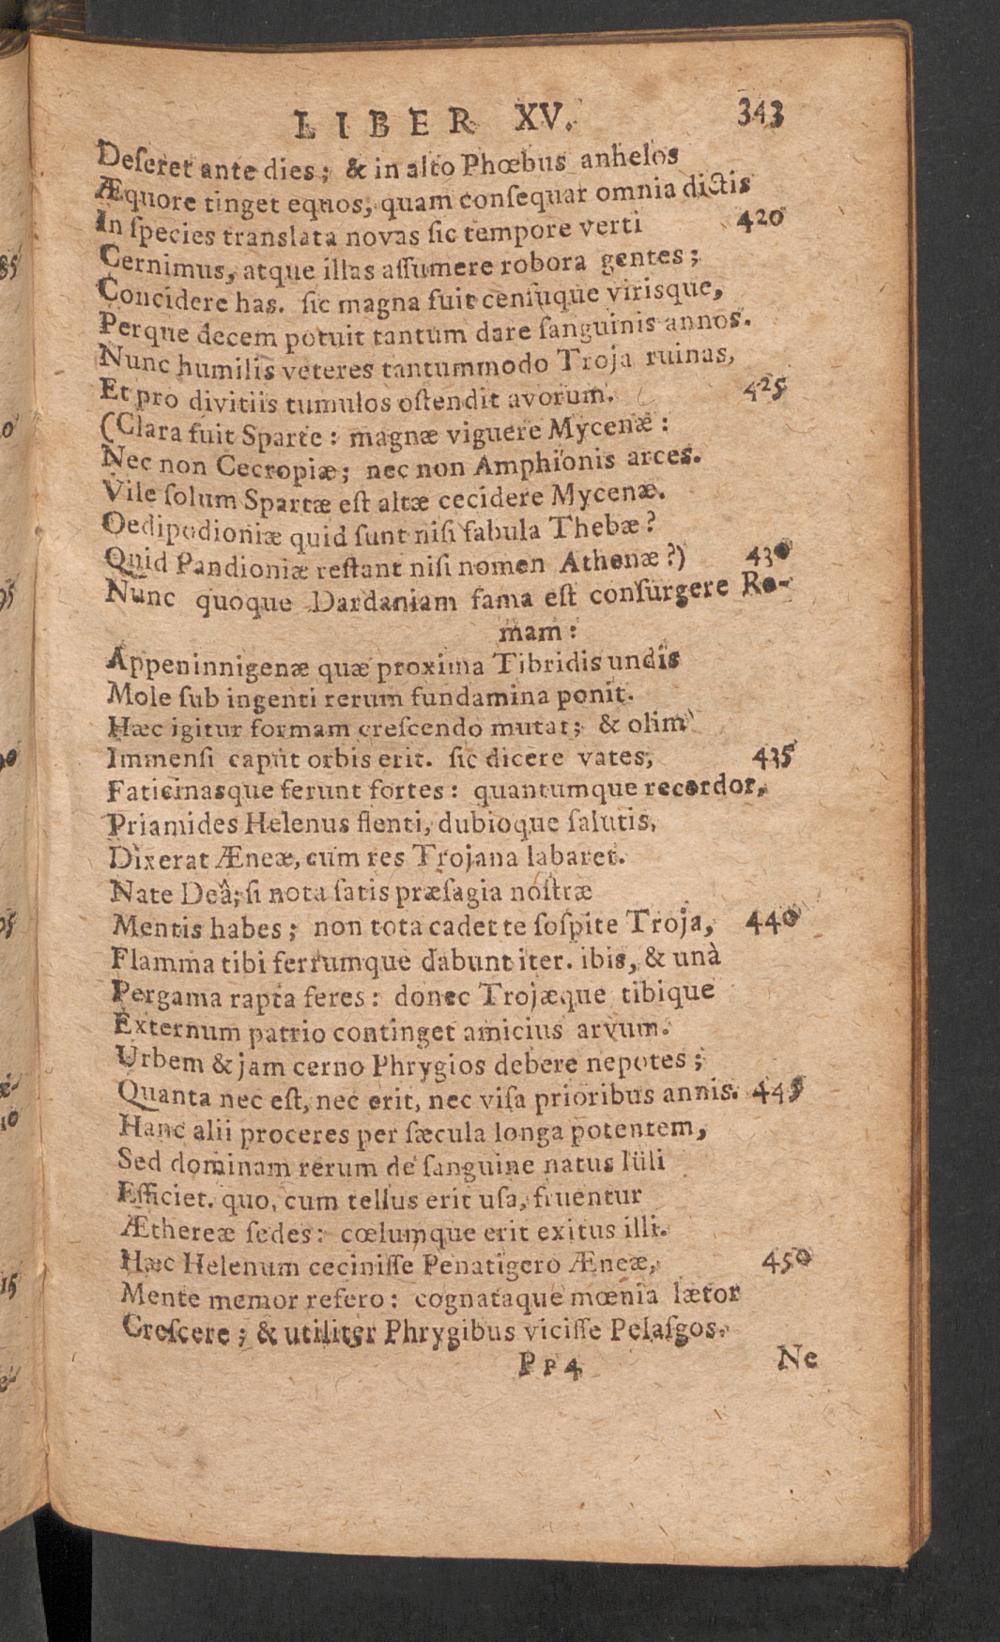 LIBER XV. 343
Deſeret ante dies; & in alto Phœbus anhelos
Æquore tinget equos, quam conſequar omnia dictis
In ſpecies translata novas ſic tempore verti 420
Cernimus, atque illas aſſumere robora gentes;
Concidere has. ſic magna fuit cenſuque virisque,
Perque decem potuit tantum dare ſanguinis annos.
Nunc humilis veteres tantummodo Troja ruinas,
Et pro divitiis tumulos oſtendit avorum. 425
(Clara fuit Sparte: magnæ viguere Mycenæ:
Nec non Cecropiæ; nec non Amphionis arces.
Vile ſolum Spartæ eſt altæ cecidere Mycenæ.
Oedipodioniæ quid ſunt niſi fabula Thebæ?
Quid Pandioniæ reſtant niſi nomen Athenæ?) 430
Nunc quoque Dardaniam fama eſt conſurgere Ro-
mam:
Appeninnigenæ quæ proxima Tibridis undis
Mole ſub ingenti rerum fundamina ponit.
Hæc igitur formam creſcendo mutat; & olim
Immenſi caput orbis erit. ſic dicere vates, 435
Faticinasque ferunt ſortes: quantumque recordor,
Priamides Helenus flenti, dubioque ſalutis,
Dixerat Æneæ, cum res Trojana labaret.
Nate Deâ; ſi nota ſatis præſagia noſtræ
Mentis habes; non tota cadet te ſoſpite Troja, 440
Flamma tibi ferrumque dabunt iter. ibis, & unà
Pergama rapta feres: donec Trojæque tibique
Externum patrio continget amicius arvum.
Urbem & jam cerno Phrygios debere nepotes;
Quanta nec eſt, nec erit, nec viſa prioribus annis. 445
Hanc alii proceres per ſæcula longa potentem,
Sed dominam rerum de ſanguine natus Iüli
Efficiet. quo, cum tellus erit uſa, fruentur
Æthereæ ſedes: cœlumque erit exitus illi.
Hæc Helenum ceciniſſe Penatigero Æneæ, 450
Mente memor refero: cognataque mœnia lætor
Creſcere; & utiliter Phrygibus viciſſe Pelaſgos.
Pp4 Ne